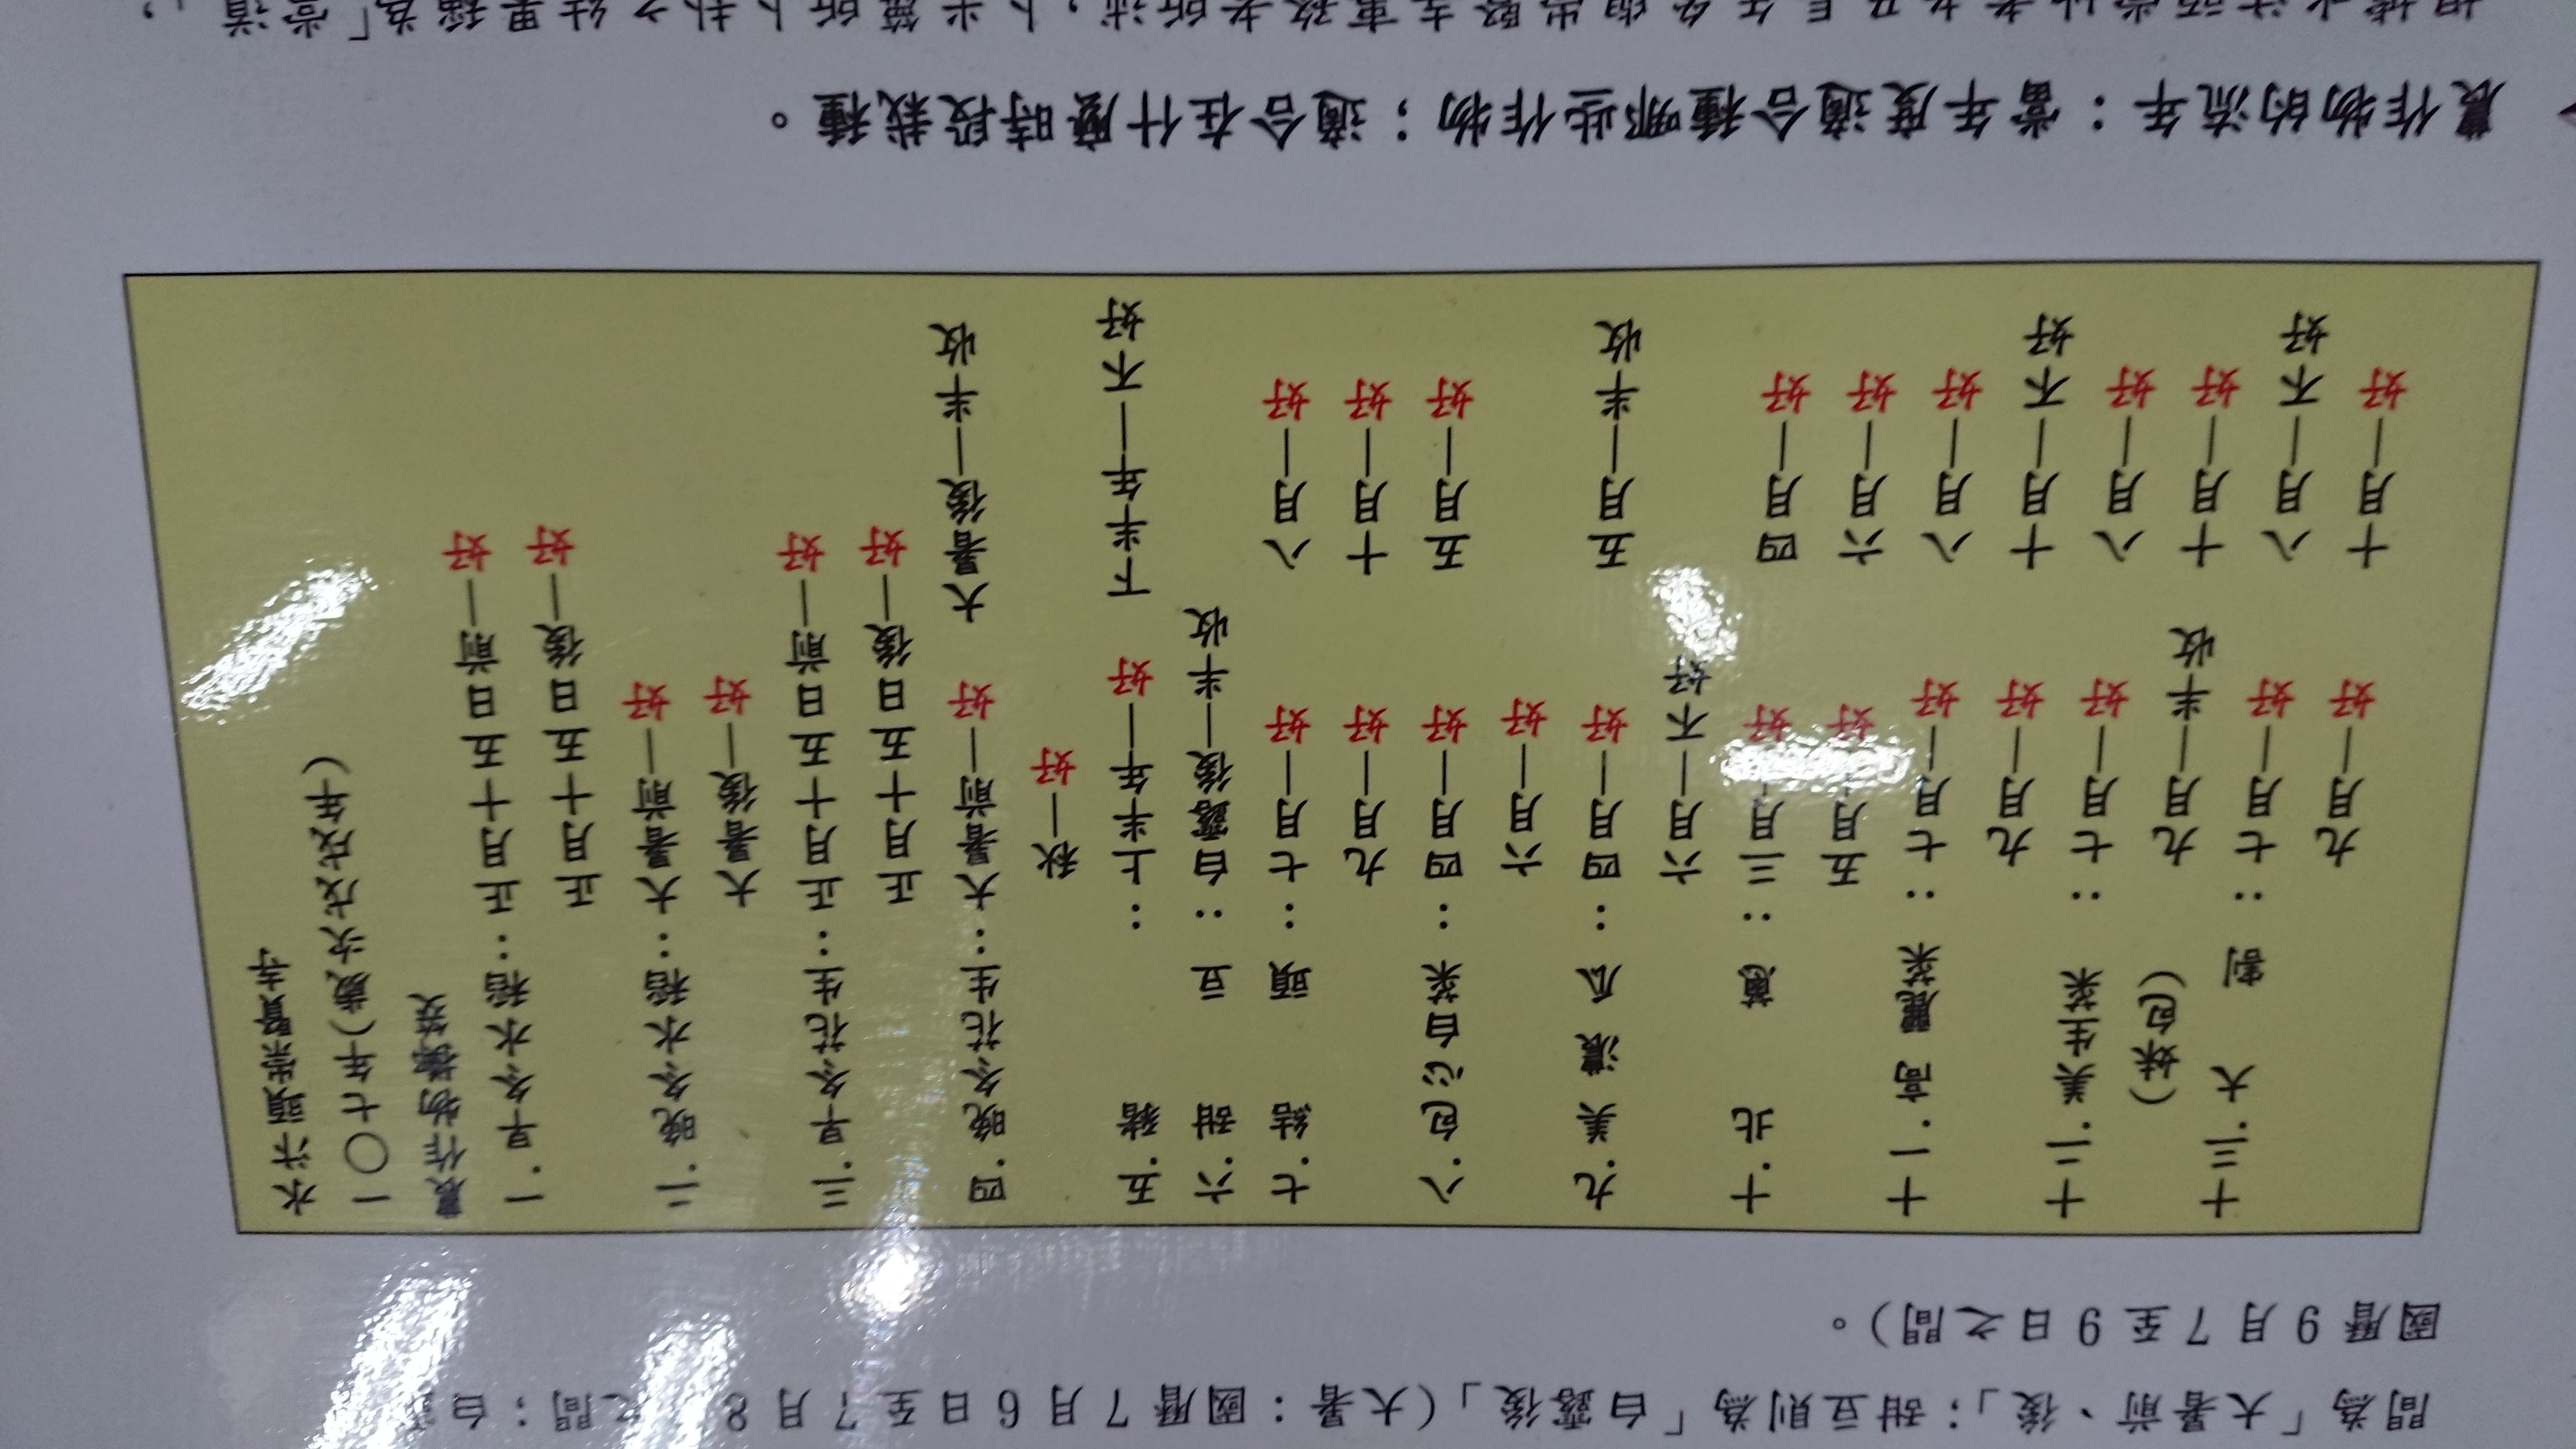 間為「大暑前、後」；甜豆則為「白露後」（大暑：國曆7月6日至7月8 之間；白
國曆9月7至9日之間）。
水汴頭崇賢寺
一〇七年（歲次戊戌年）
農作物擲筊
一.早冬水稻：正月十五日前—好
正月十五日後—好
二.晚冬水稻：大暑前—好
大暑後—好
三.早冬花生：正月十五日前—好
正月十五日後—好
四.晚冬花生：大暑前—好 大暑後—半收
秋—好
五.豬：上半年—好 下半年—不好
六.甜豆：白露後—半收
七.結頭：七月—好 八月—好
九月—好 十月—好
八.包沁白菜：四月—好 五月—好
六月—好
九.美濃瓜：四月—好 五月—半收
六月—不好
十.北蔥：三月—好 四月—好
五月—好 六月—好
十一.高麗菜：七月—好 八月—好
九月—好 十月—不好
十二.美生菜：七月—好 八月—好
（妹包） 九月—半收 十月—好
十三.大割：七月—好 八月—不好
九月—好 十月—好
農作物的流年：當年度適合種哪些作物；適合在什麼時段栽種。